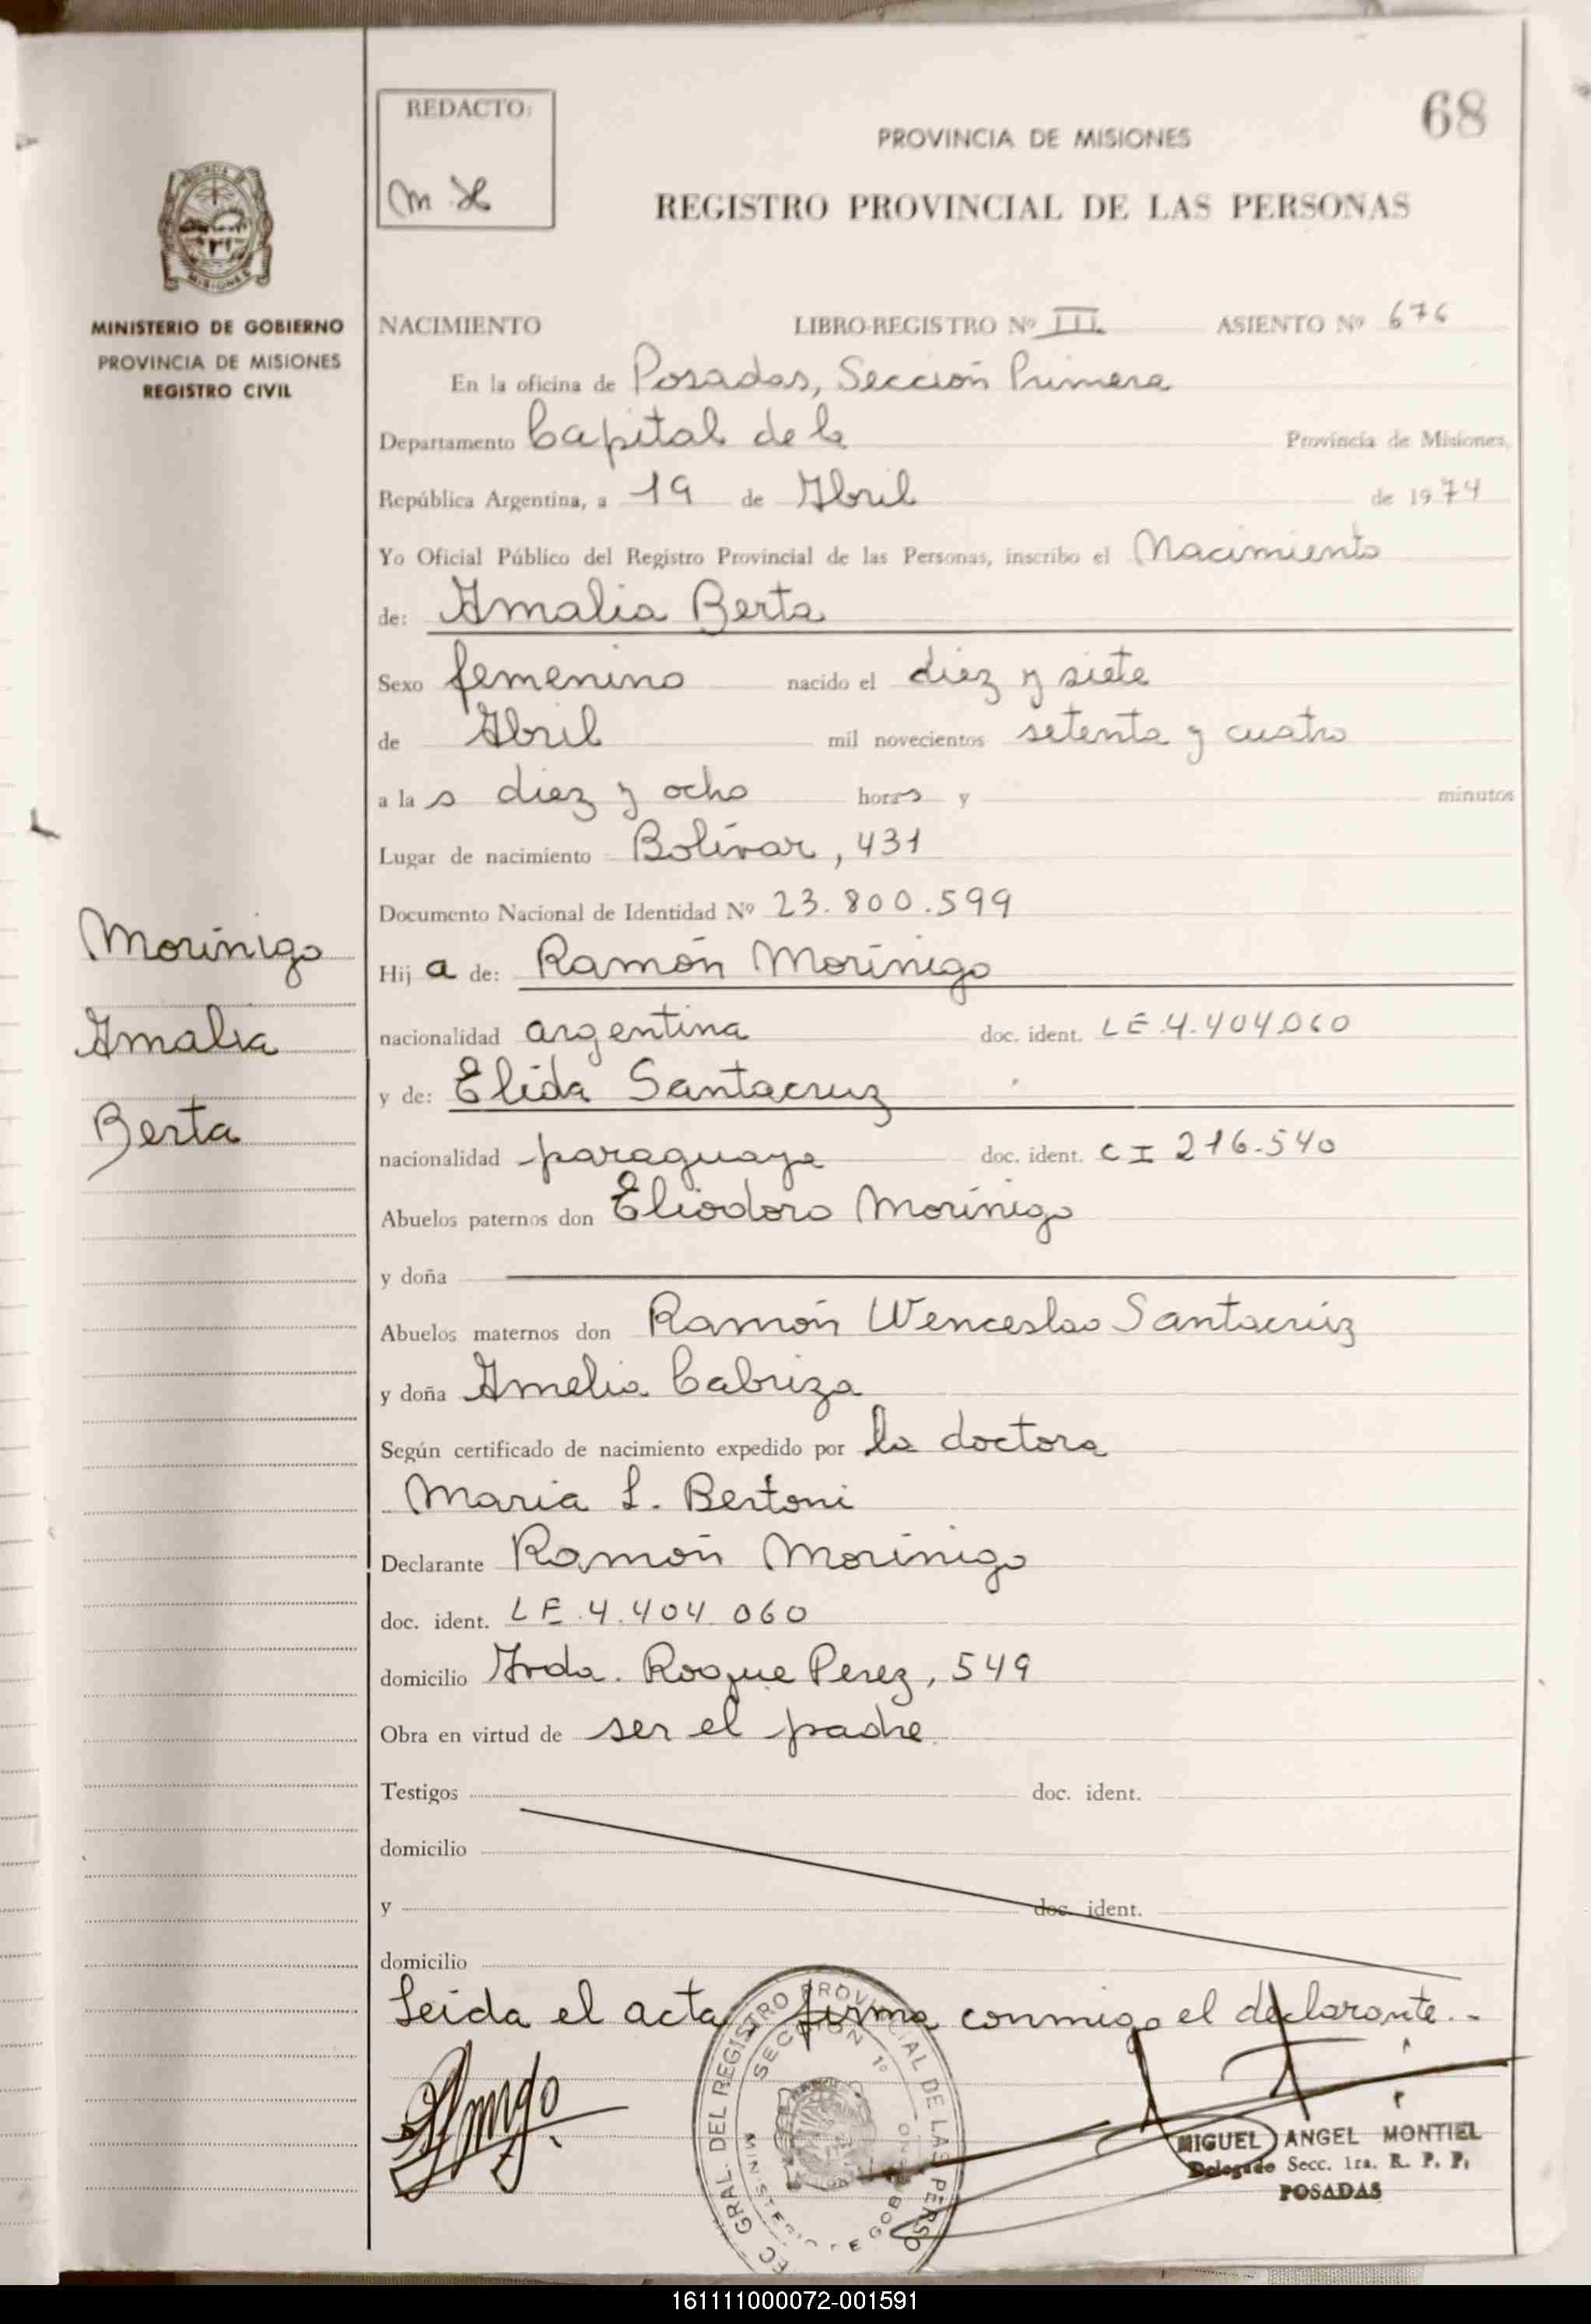 REDACTO:
68
PROVINCIA DE MISIONES
REGISTRO PROVINCIAL DE LAS PERSONAS
MISIONES
MINISTERIO DE GOBIERNO
PROVINCIA DE MISIONES
REGISTRO CIVIL
NACIMIENTO LIBRO-REGISTRO Nº III ASIENTO Nº 676
En la oficina de Posadas, Sección Primera
Departamento Capital de la Provincia de Misiones,
República Argentina, a 19 de Abril de 1974
Yo Oficial Público del Registro Provincial de las Personas, inscribo el Nacimiento
de: Amalia Berta
Sexo femenino nacido el diez y siete
de Abril mil novecientos setenta y cuatro
a la s diez y ocho horas y minutos
Lugar de nacimiento Bolívar, 431
Documento Nacional de Identidad Nº 23.800.599
Morínigo
Amalia
Berta
Hij a de: Ramón Morínigo
nacionalidad argentina doc. ident. LE.4.404.060
y de: Elida Santacruz
nacionalidad paraguaya doc. ident. CI 216.540
Abuelos paternos don Eliodoro Morínigo
y doña
Abuelos maternos don Ramón Wenceslao Santacruz
y doña Amelia Cabriza
Según certificado de nacimiento expedido por la doctora
Maria L. Bertoni
Declarante Ramón Morínigo
doc. ident. LE.4.404.060
domicilio Avda. Roque Perez, 549
Obra en virtud de ser el padre
Testigos doc. ident.
domicilio
y doc. ident.
domicilio
Leida el acta, firma conmigo el declarante.-
GRAL. DEL REGISTRO PROVINCIAL DE LAS PERSO
SECCION 1º
MIGUEL ANGEL MONTIEL
Delegado Secc. 1ra. R. P. P.
POSADAS
161111000072-001591